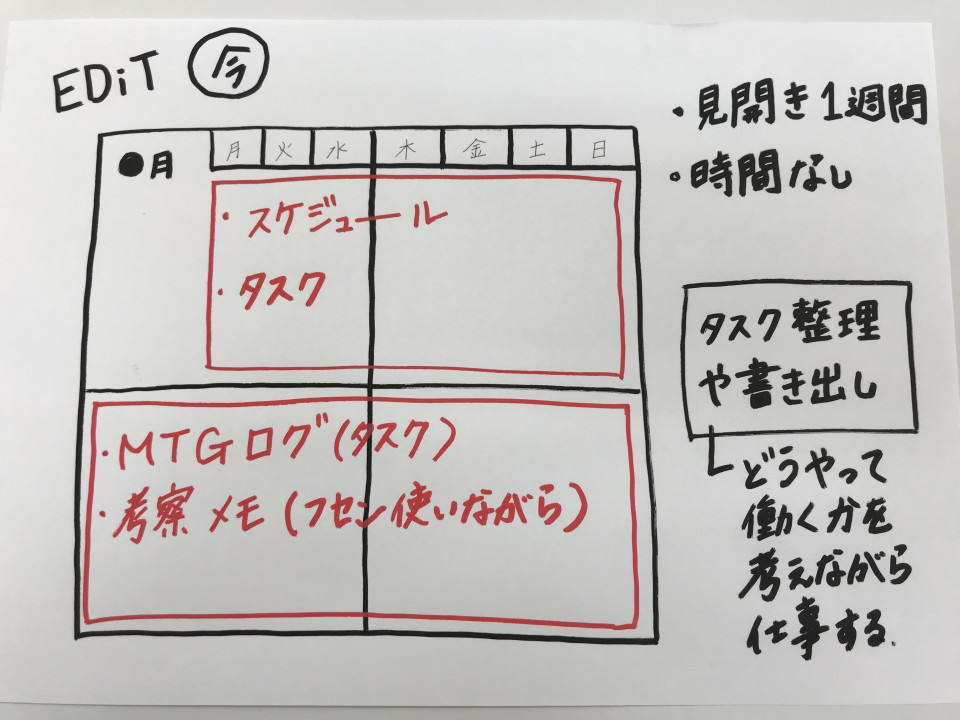 EDiT 今
●月
月 火 水 木 金 土 日
・スケジュール
・タスク
・MTGログ(タスク)
・考察メモ(フセン使いながら)
・見開き1週間
・時間なし
タスク整理
や書き出し
どうやって
働くかを
考えながら
仕事する.